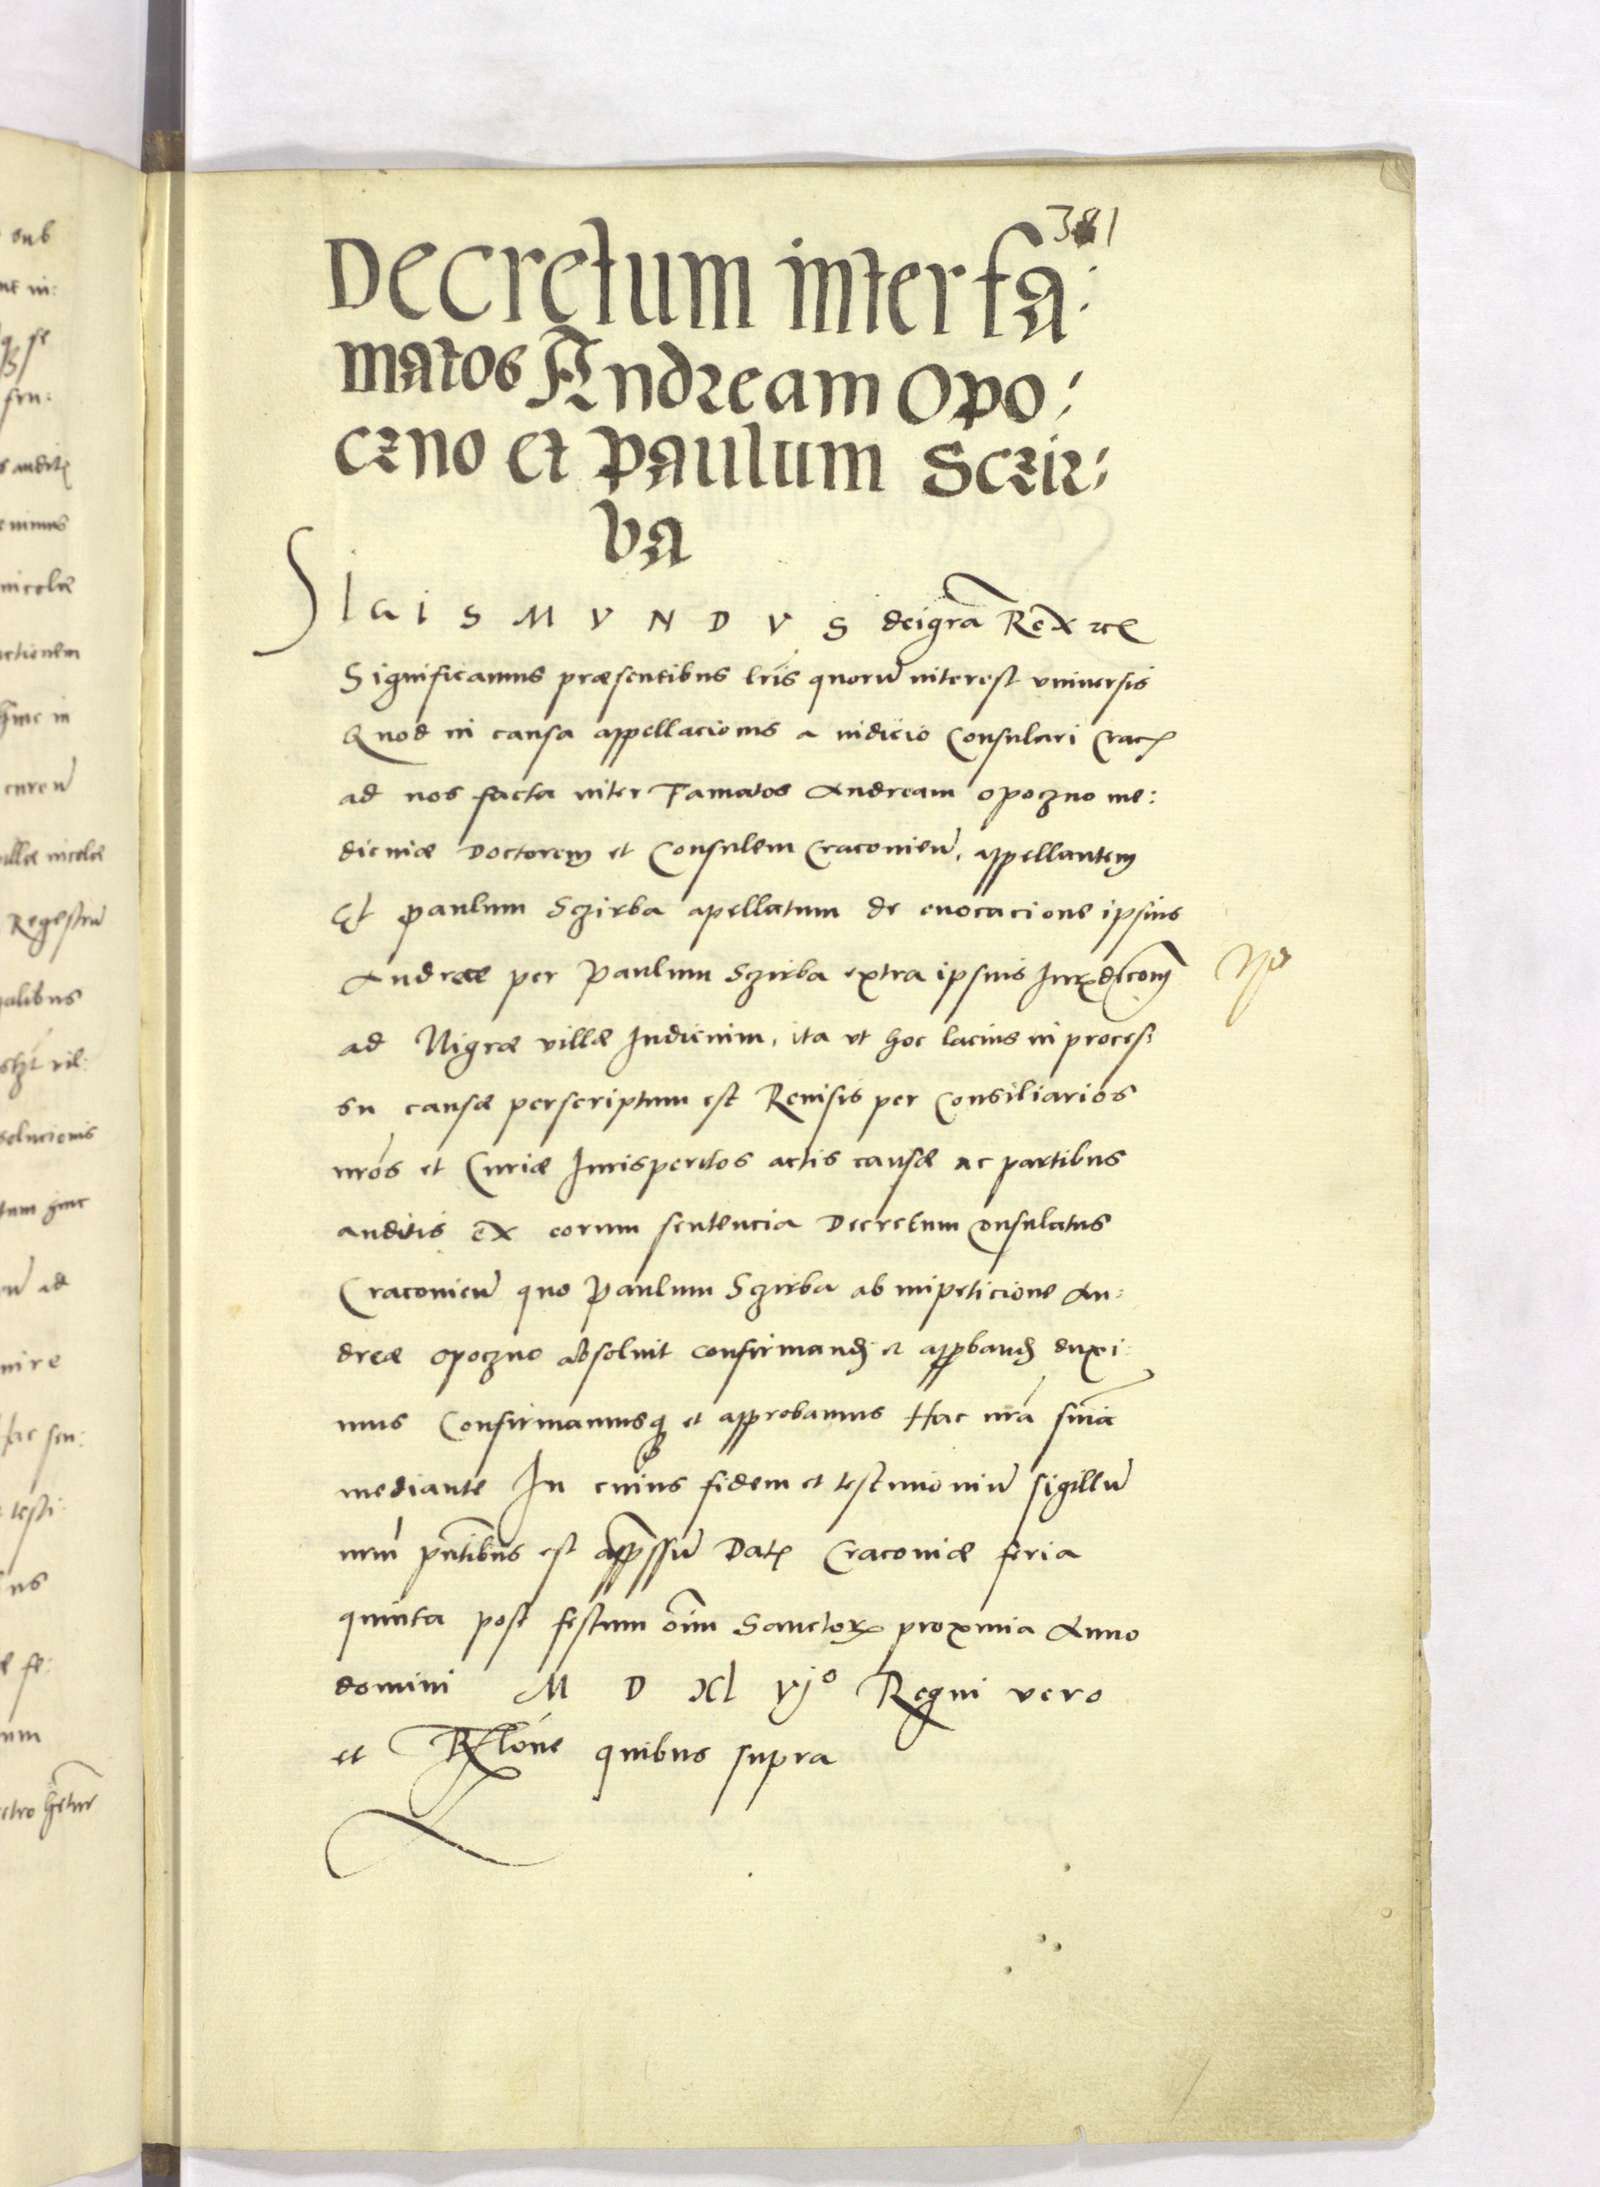 381
Decretum inter fa:
matos Andream Opo:
czno et Paulum Sczir:
ba
SIGISMVNDVS dei gra Rex etc
Significamus præsentibus lris quorum interest vniversis
Quod in causa appellacionis a iudicio Consulari Crac
ad nos facta inter Famatos Andream Opoczno me:
dicinæ Doctorem et Consulem Craconien, appellantem
Et Paulum Sczirba apellatum de euocacione ipsius
Andreæ per Paulum Sczirba extra ipsius Jurxdiconem
ad Nigræ villæ Judicium, ita vt hoc lacius in proces:
su causæ perscriptum est Reuisis per Consiliarios
nros et Curiæ Jurisperitos actis causæ ac partibus
auditis ex eorum sentencia Decretum Consulatus
Craconien quo Paulum Sczirba ab impeticione An:
dreæ Opoczno absoluit confirmand et approband duxi:
mus Confirmamusq et approbamus Hac nra snia
mediante In cuius fidem et testimonium sigillum
nrm pntibus est appssum Dat Cracouiæ feria
quinta post festum oim Sanctor proxima Anno
domini M D Xl vjo Regni vero
et Rlone quibus supra